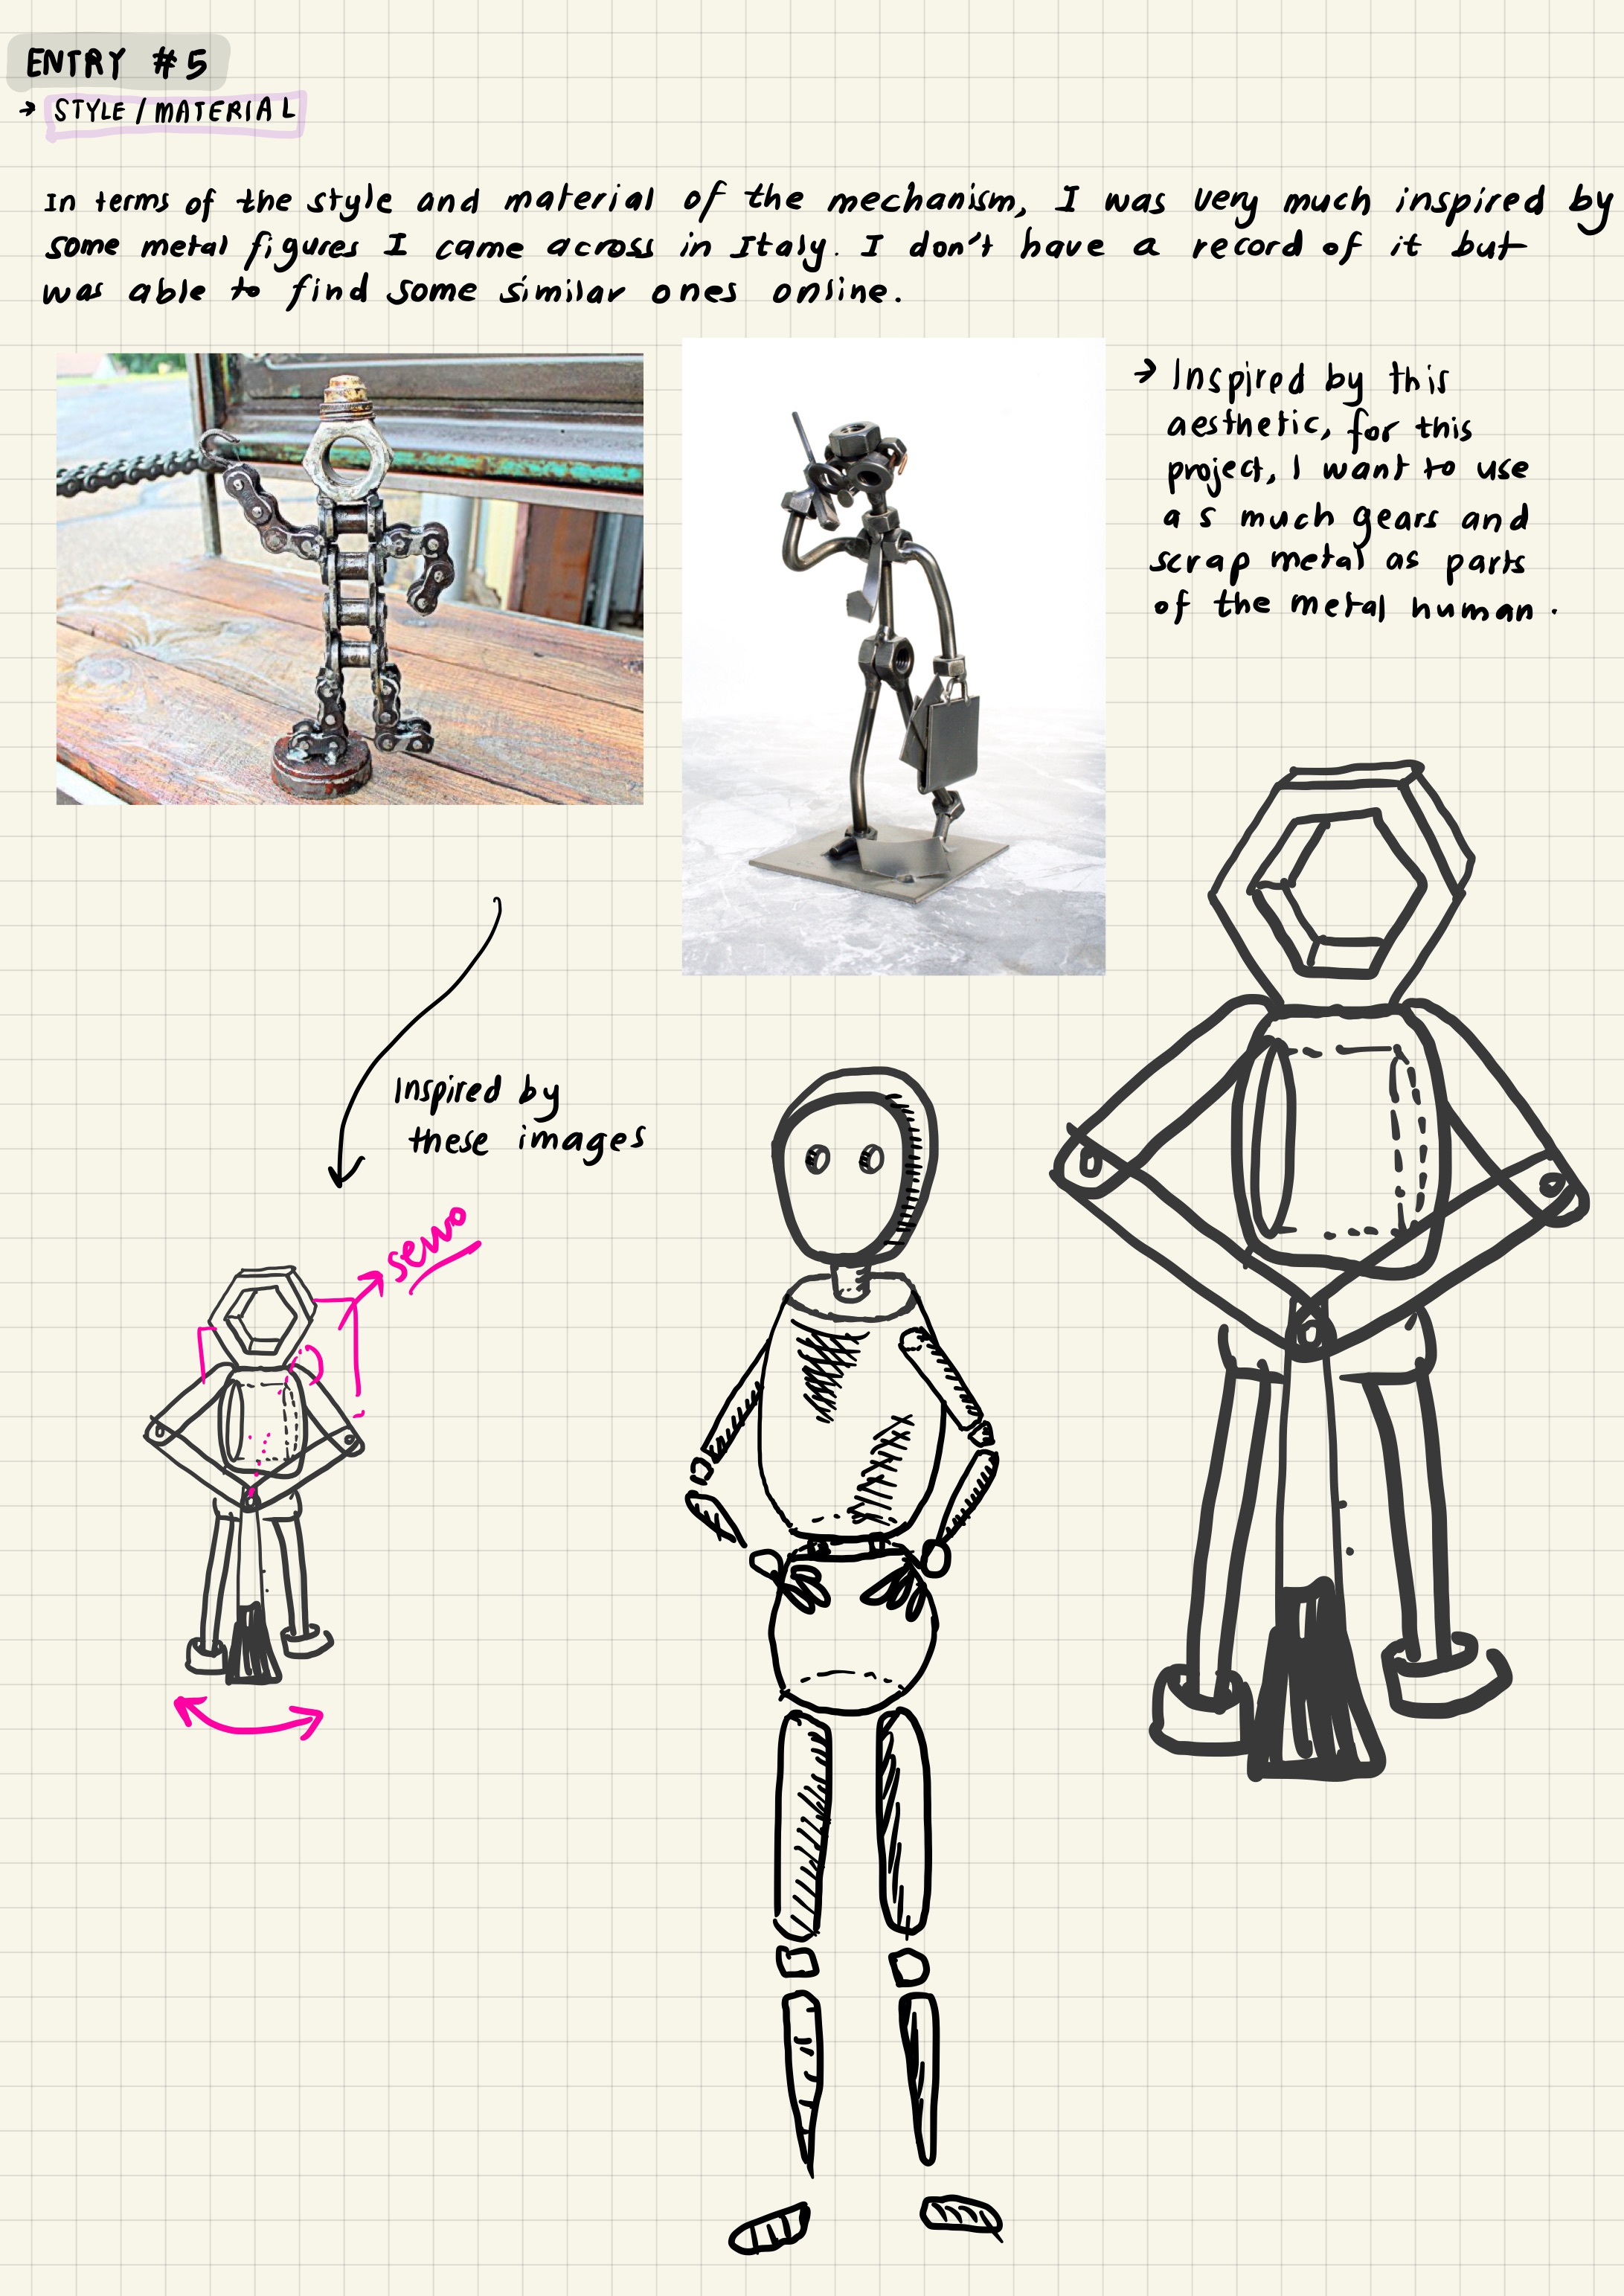 ENTRY #5
→ STYLE / MATERIAL
In terms of the style and material of the mechanism, I was very much inspired by
some metal figures I came across in Italy. I don't have a record of it but
was able to find some similar ones online.
→ Inspired by this
aesthetic, for this
project, I want to use
as much gears and
scrap metal as parts
of the metal human.
Inspired by
these images
servo